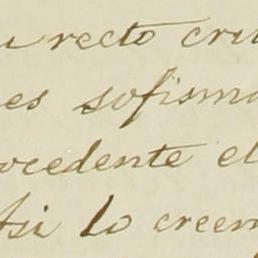 u recto crit
es sofisma
ocedente el
Asi lo creem